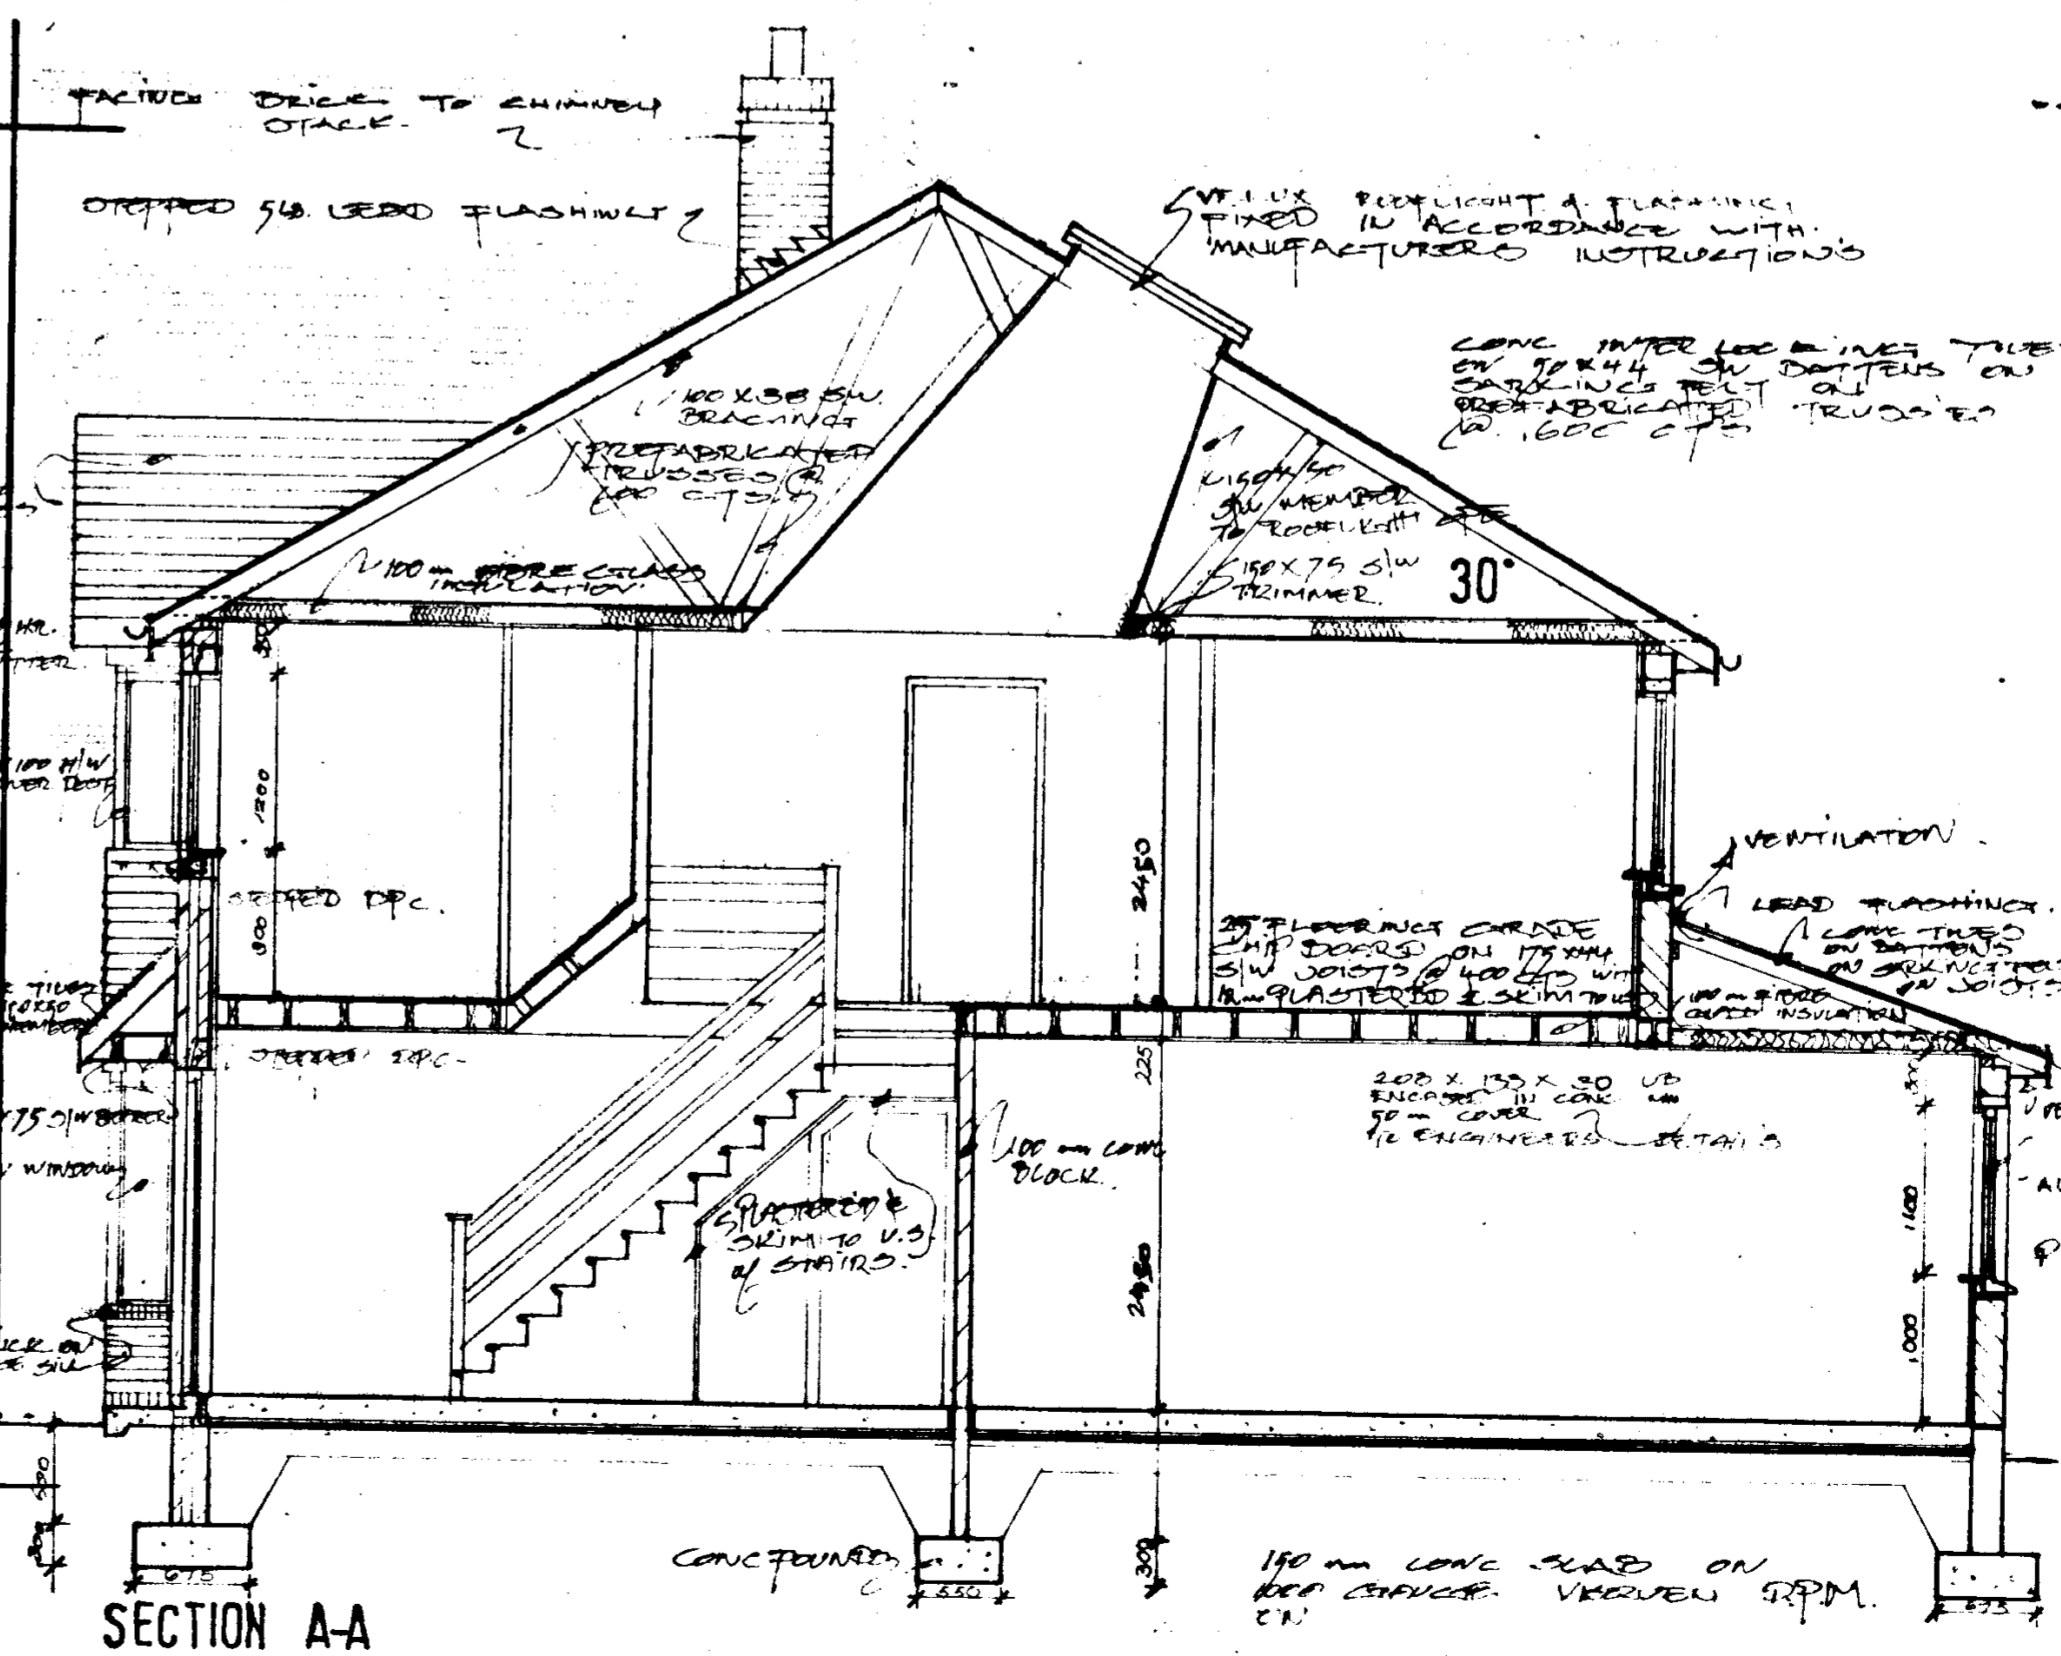 FACING BRICK TO CHIMNEY
STACK.
STEPPED 5LB. LEAD FLASHING
VELUX ROOFLIGHT & FLASHING
FIXED IN ACCORDANCE WITH
MANUFACTURERS INSTRUCTION'S
CONC INTER LOCKING TILE
50 X 44 SW BATTENS ON
SARKING FELT ON
PREFABRICATED TRUSSES
@ 600 CTS
100 X 38 SW.
BRACING
PREFABRICATED
TRUSSES @
600 CTS
150 X 50
SW MEMBER
TO ROOFLIGHT
150 X 75 S/W
TRIMMER.
30°
100mm FIBREGLASS
INSULATION.
100 H/W
1200
900
STEPPED DPC.
STEPPED DPC.
2450
225
25 FLOORING GRADE
CHIP BOARD ON 175 X 44
S/W JOISTS @ 400 CTS WITH
12mm PLASTERBD & SKIM
VENTILATION.
LEAD FLASHING.
CONC TILES
ON BATTENS
ON SARKING FELT
ON JOISTS
100mm FIBRE
GLASS INSULATION
TILES
MEMBER
75 S/W
WINDOW
203 X 133 X 30 UB
ENCASED IN CONC MIN
50mm COVER
ENGINEERS DETAILS
100 mm CONC
BLOCK.
PLASTERBD &
SKIM TO U.S.
of STAIRS.
2450
1100
1000
500
300
675
CONC FOUND
300
550
150 mm CONC SLAB ON
1000 GAUGE VISQUEEN D.P.M.
ON
675
SECTION A-A